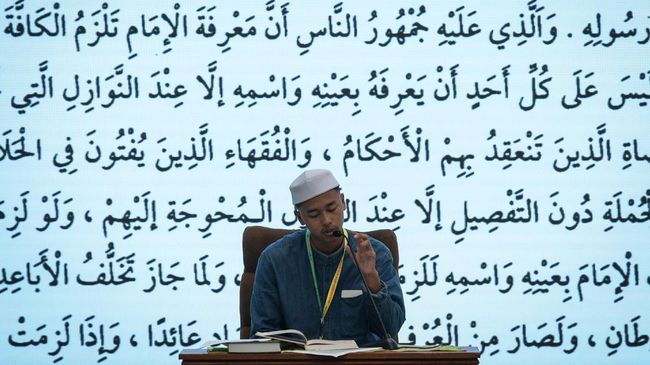 رَسُولِهِ . وَالَّذِي عَلَيْهِ جُمْهُورُ النَّاسِ أَنَّ مَعْرِفَةَ الْإِمَامِ تَلْزَمُ الْكَافَّةَ
عَلَى كُلِّ أَحَدٍ أَنْ يَعْرِفَهُ بِعَيْنِهِ وَاسْمِهِ إلَّا عِنْدَ النَّوَازِلِ الَّتِي
الَّذِينَ تَنْعَقِدُ بِهِمْ الْأَحْكَامُ ، وَالْفُقَهَاءِ الَّذِينَ يُفْتُونَ فِي
دُونَ التَّفْصِيلِ إلَّا عِنْدَ الْمُحْوِجَةِ إلَيْهِمْ ، وَلَوْ
الْإِمَامَ بِعَيْنِهِ وَاسْمِهِ ، وَلَمَا جَازَ تَخَلُّفُ
، وَلَصَارَ مِنْ عَائِدًا ، وَإِذَا لَزِمَتْ